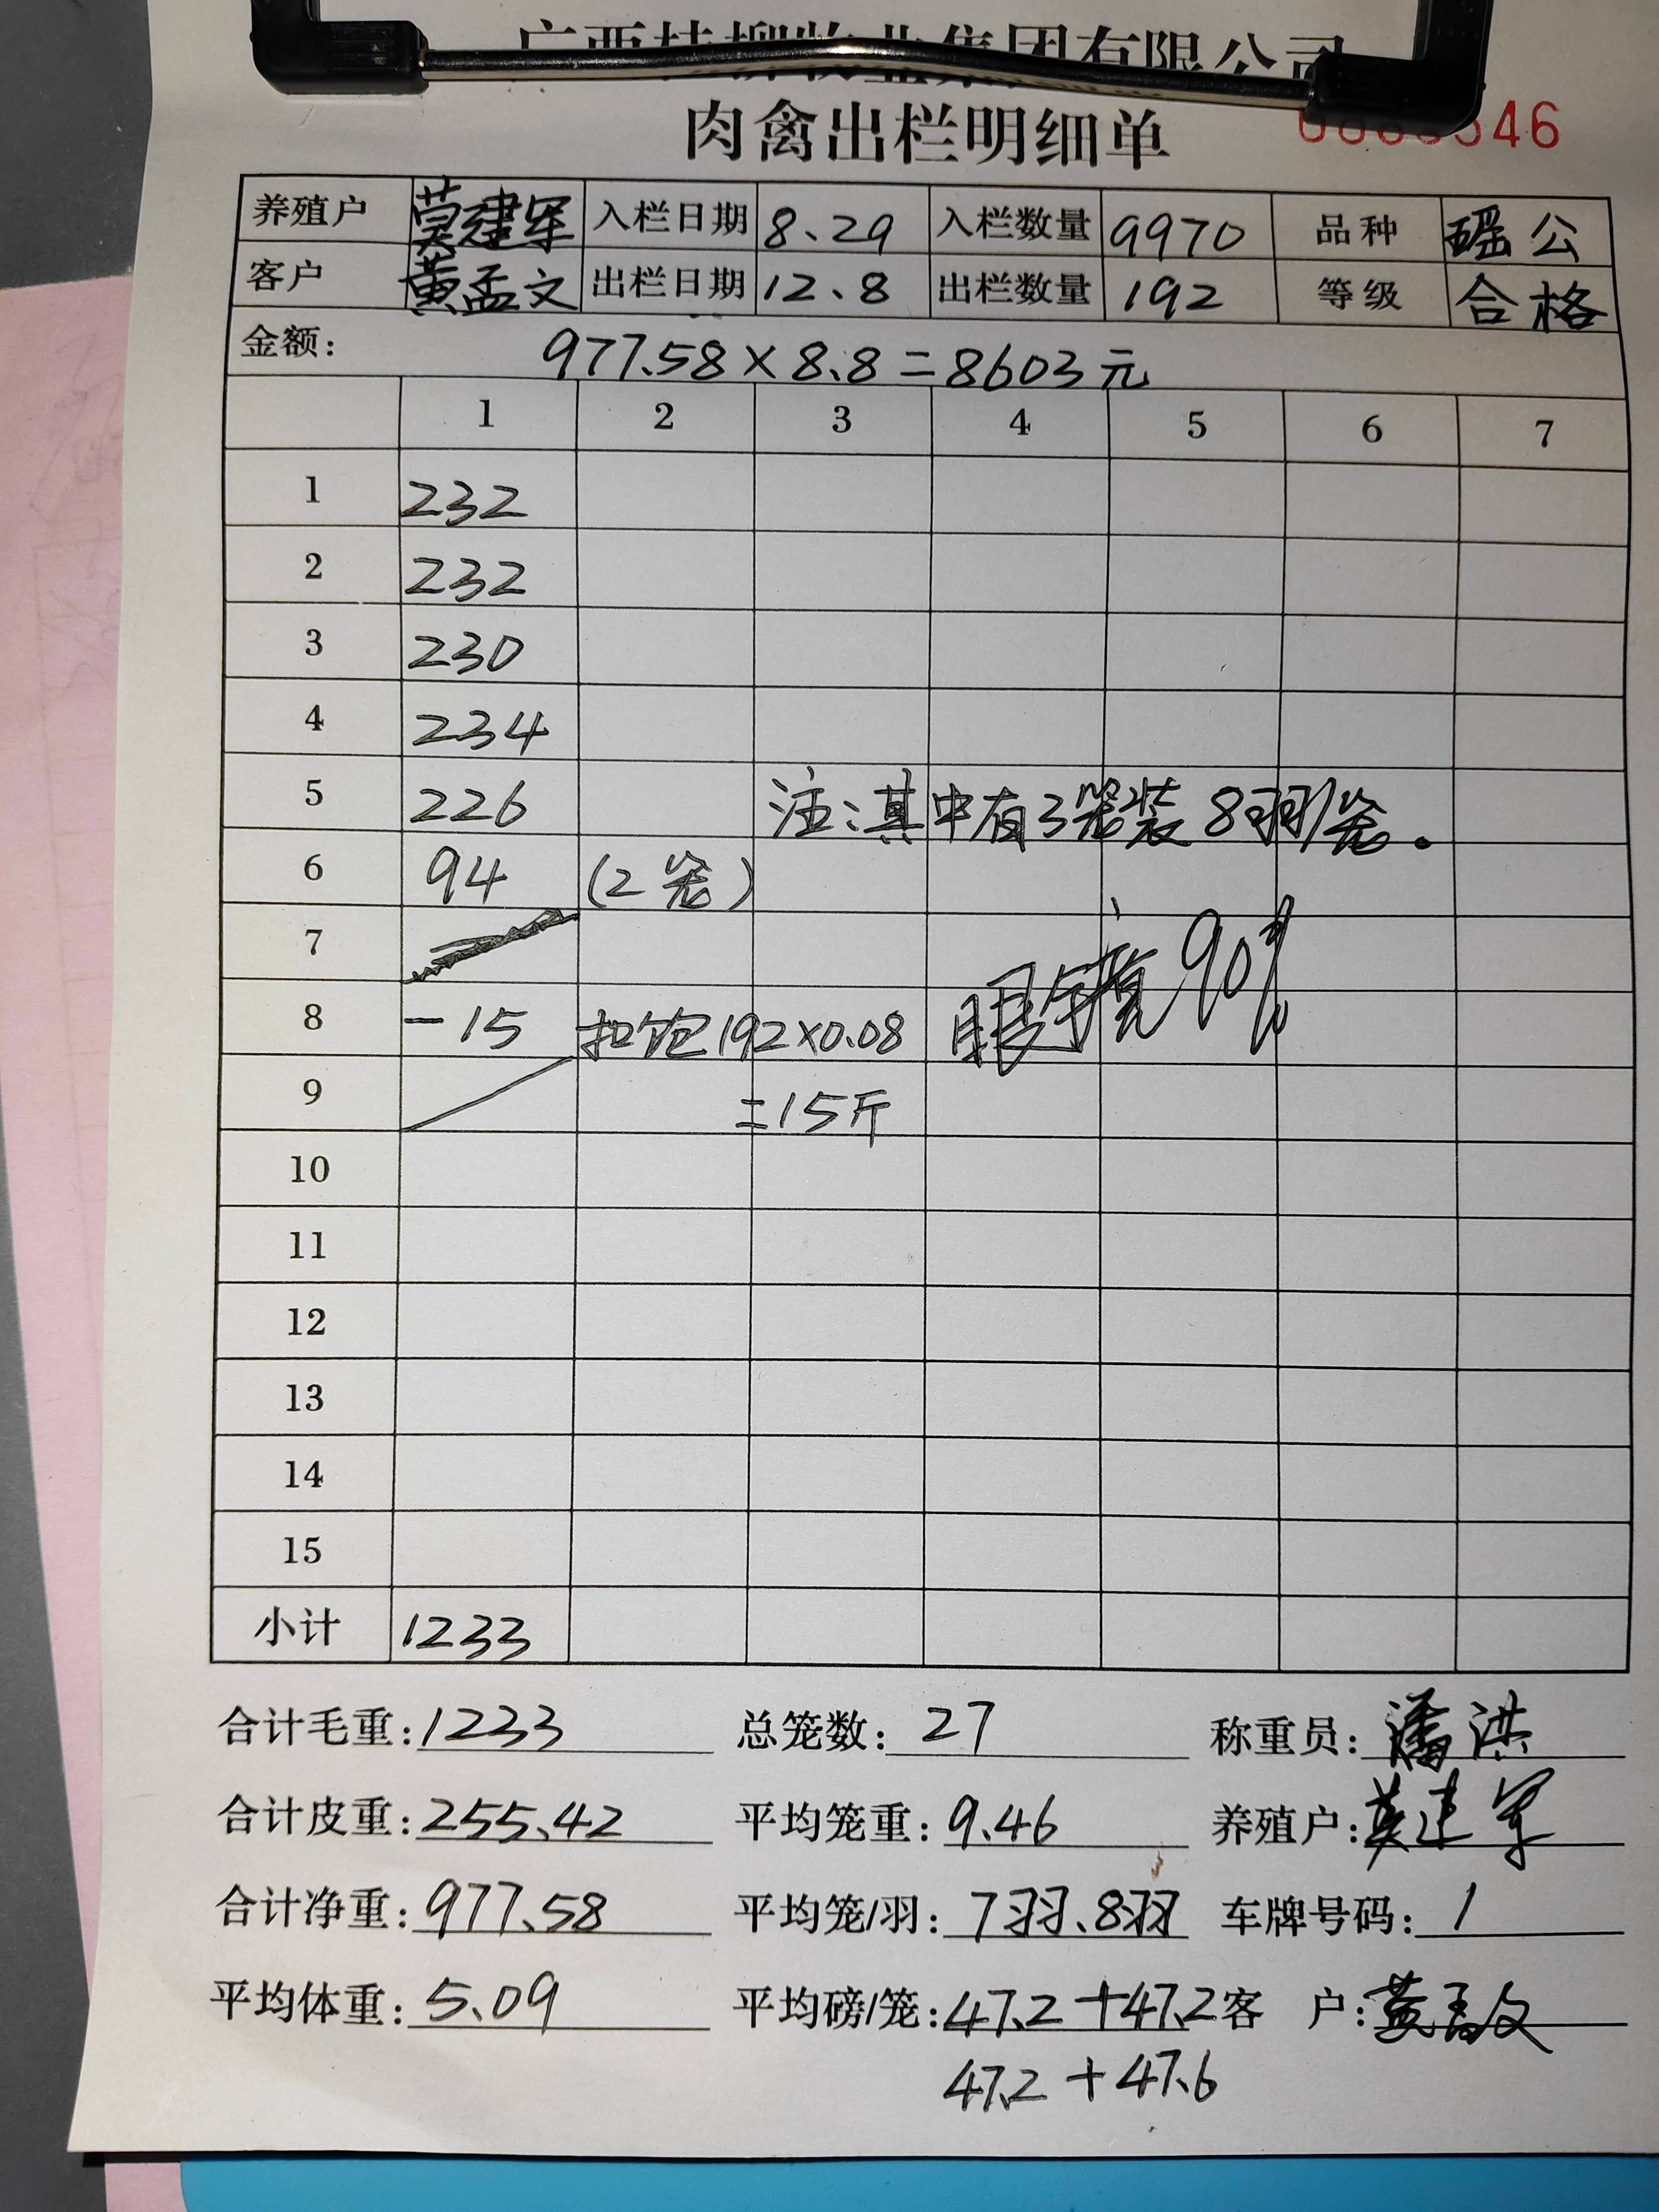 肉禽出栏明细单
46
养殖户 莫建军 入栏日期 8.29 入栏数量 9970 品种 瑶公
客户 黄孟文 出栏日期 12.8 出栏数量 192 等级 合格
金额: 977.58×8.8=8603元
1 2 3 4 5 6 7
1 232
2 232
3 230
4 234
5 226 注:其中有3笼装8羽/笼。
6 94 (2笼)
7
8 -15 扣饱192×0.08 眼睛 90%
9 =15斤
10
11
12
13
14
15
小计 1233
合计毛重: 1233 总笼数: 27 称重员: 潘洪
合计皮重: 255.42 平均笼重: 9.46 养殖户: 莫建军
合计净重: 977.58 平均笼/羽: 7羽.8羽 车牌号码: 1
平均体重: 5.09 平均磅/笼: 47.2+47.2 客 户: 黄孟文
47.2+47.6